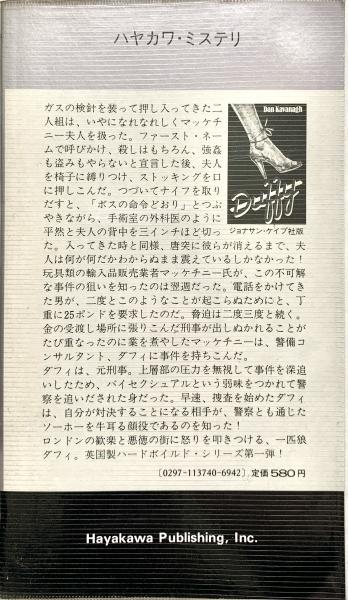 ハヤカワ・ミステリ
ガスの検針を装って押し入ってきた二
人組は、いやになれなれしくマッケチ
ニー夫人を扱った。ファースト・ネー
ムで呼びかけ、殺しはもちろん、強姦
も盗みもやらないと宣言した後、夫人
を椅子に縛りつけ、ストッキングを口
に押しこんだ。つづいてナイフを取り
だすと、「ボスの命令どおり」とつぶ
やきながら、手術室の外科医のように
平然と夫人の背中を三インチほど切っ
た。入ってきた時と同様、唐突に彼らが消えるまで、夫
人は何が何だかわからぬまま震えているしかなかった！
玩具類の輸入品販売業者マッケチニー氏が、この不可解
な事件の狙いを知ったのは翌週だった。電話をかけてき
た男が、二度とこのようなことが起こらぬためにと、丁
重に25ポンドを要求したのだ。脅迫は二度三度と続く。
金の受渡し場所に張りこんだ刑事が出しぬかれることが
たび重なったのに業を煮やしたマッケチニーは、警備コ
ンサルタント、ダフィに事件を持ちこんだ。
ダフィは、元刑事。上層部の圧力を無視して事件を深追
いしたため、バイセクシュアルという弱味をつかれて警
察を追いだされた身だった。早速、捜査を始めたダフィ
は、自分が対決することになる相手が、警察とも通じた
ソーホーを牛耳る顔役であるのを知った！
ロンドンの歓楽と悪徳の街に怒りを叩きつける、一匹狼
ダフィ。英国製ハードボイルド・シリーズ第一弾！
Dan Kavanagh
Duffy
ジョナサン・ケイプ社版
〔0297-113740-6942〕定価 580円
Hayakawa Publishing, Inc.